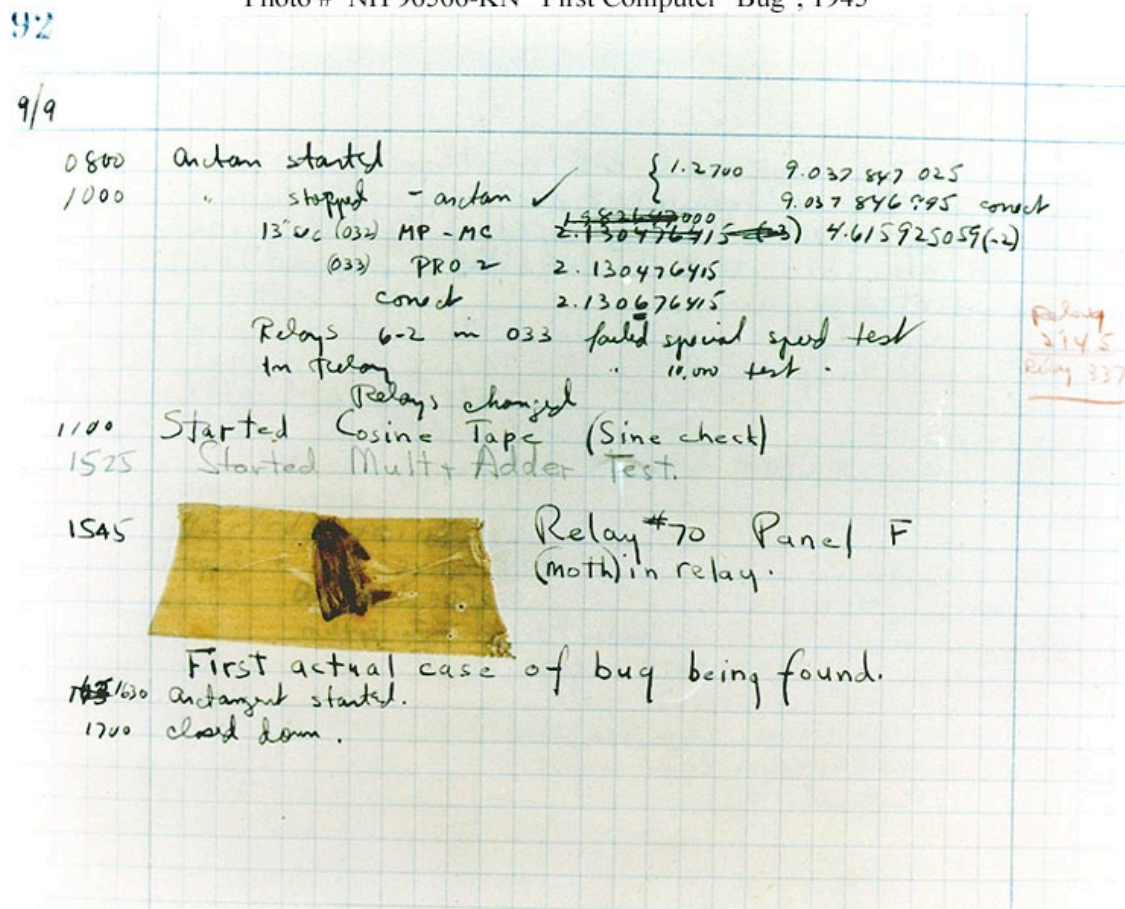 Photo # NH 96566-KN "First Computer "Bug", 1945
92
9/9
0800 arctan started { 1.2700 9.037 847 025
1000 " stopped - arctan ✓ 9.037 846 995 conect
13" sec (032) MP - MC 2.130476415 (-3) 4.615925059(-2)
(033) PRO 2 2.130476415
conect 2.130676415
Relays 6-2 in 033 failed special speed test
In Relay " 10,000 test .
Relay
Relay 337
Relays changed
1100 Started Cosine Tape (Sine check)
1525 Started Mult + Adder Test.
1545 Relay #70 Panel F
(moth) in relay.
First actual case of bug being found.
1630 arctangent started.
1700 closed down .